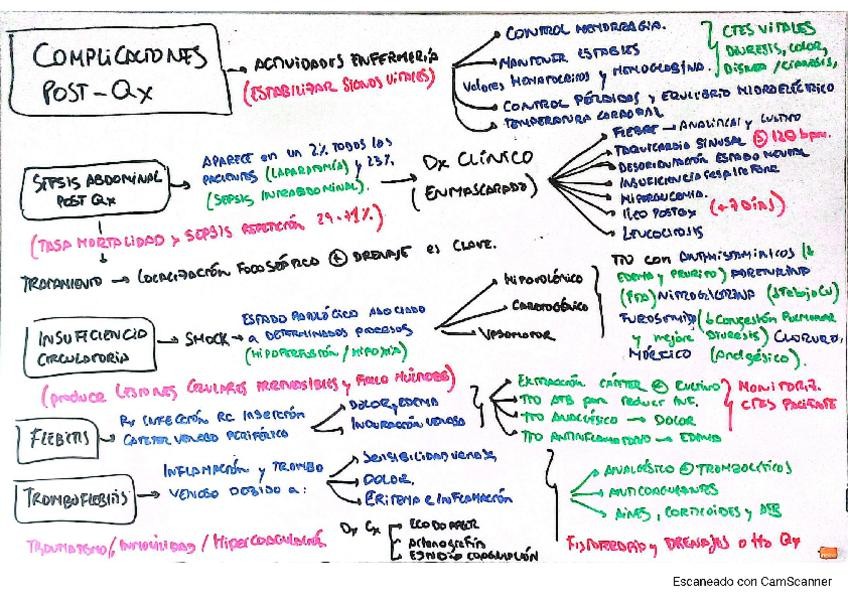 COMPLICACIONES POST-QX
ACTIVIDADES ENFERMERÍA
(ESTABILIZAR SIGNOS VITALES)
CONTROL HEMORRAGIA.
MANTENER ESTABLES
Valores HEMATOCRITOS y HEMOGLOBINA.
CTES VITALES
DIURESIS, COLOR,
DISNEA/CIANOSIS,
CONTROL PÉRDIDAS y EQUILIBRIO HIDROELÉCTRICO
TEMPERATURA CORPORAL
SEPSIS ABDOMINAL
POST QX
APARECE en un 2% TODOS LOS
PACIENTES (LAPAROTOMÍA) y 23%
(SEPSIS INTRAABDOMINAL).
DX CLÍNICO
(ENMASCARADO)
FIEBRE - ANALÍTICA y CULTIVO
TAQUICARDIA SINUSAL > 120 bpm.
DESORIENTACIÓN ESTADO MENTAL
INSUFICIENCIA RESPIRATORIA
HIPOXEMIA.
ILEO POSTQX (+7 DÍAS)
LEUCOCITOSIS
(TASA MORTALIDAD x SEPSIS REPETICIÓN 29-71%)
TRATAMIENTO → LOCALIZACIÓN FOCO SÉPTICO + DRENAJE es CLAVE.
INSUFICIENCIA
CIRCULATORIA
SHOCK →
ESTADO PATOLÓGICO ASOCIADO
a DETERMINADOS PROCESOS
(HIPOPERFUSIÓN/HIPOXIA)
HIPOVOLÉMICO
CARDIOGÉNICO
VASOMOTOR
TTO CON ANTIHISTAMINICOS (↓
EDEMA y PRURITO)
NITROGLICERINA (↓Trabajo CV)
FUROSEMIDA (↓Congestión Pulmonar
y mejora Diuresis) CLORURO
MÓRFICO (Analgésico).
(produce LESIONES CELULARES IRREVERSIBLES y FALLO MULTIORG)
FLEBITIS
INFECCIÓN INSERCIÓN
CATETER VENOSO PERIFÉRICO
DOLOR y EDEMA
INDURACIÓN VENOSO
EXTRACCIÓN CATÉTER + CULTIVO
TTO ATB por reducir INF.
TTO ANALGÉSICO → DOLOR
TTO ANTIINFLAMATORIO → EDEMA
MONITORIZ.
CTES PACIENTE
TROMBOFLEBITIS
INFLAMACIÓN y TROMBO
VENOSO DEBIDO a:
SENSIBILIDAD VENOSA,
DOLOR,
ERITEMA e INFLAMACIÓN
ANALGÉSICO + TROMBOLÍTICOS
ANTICOAGULANTES
AINES, CORTICOIDES y ATB
TRAUMATISMO/INMOVILIDAD/HIPERCOAGULACIÓN
ECODOPPLER
ESTUDIO COAGULACIÓN
FISIOTERAPIA y DRENAJES o tto Qx
Escaneado con CamScanner